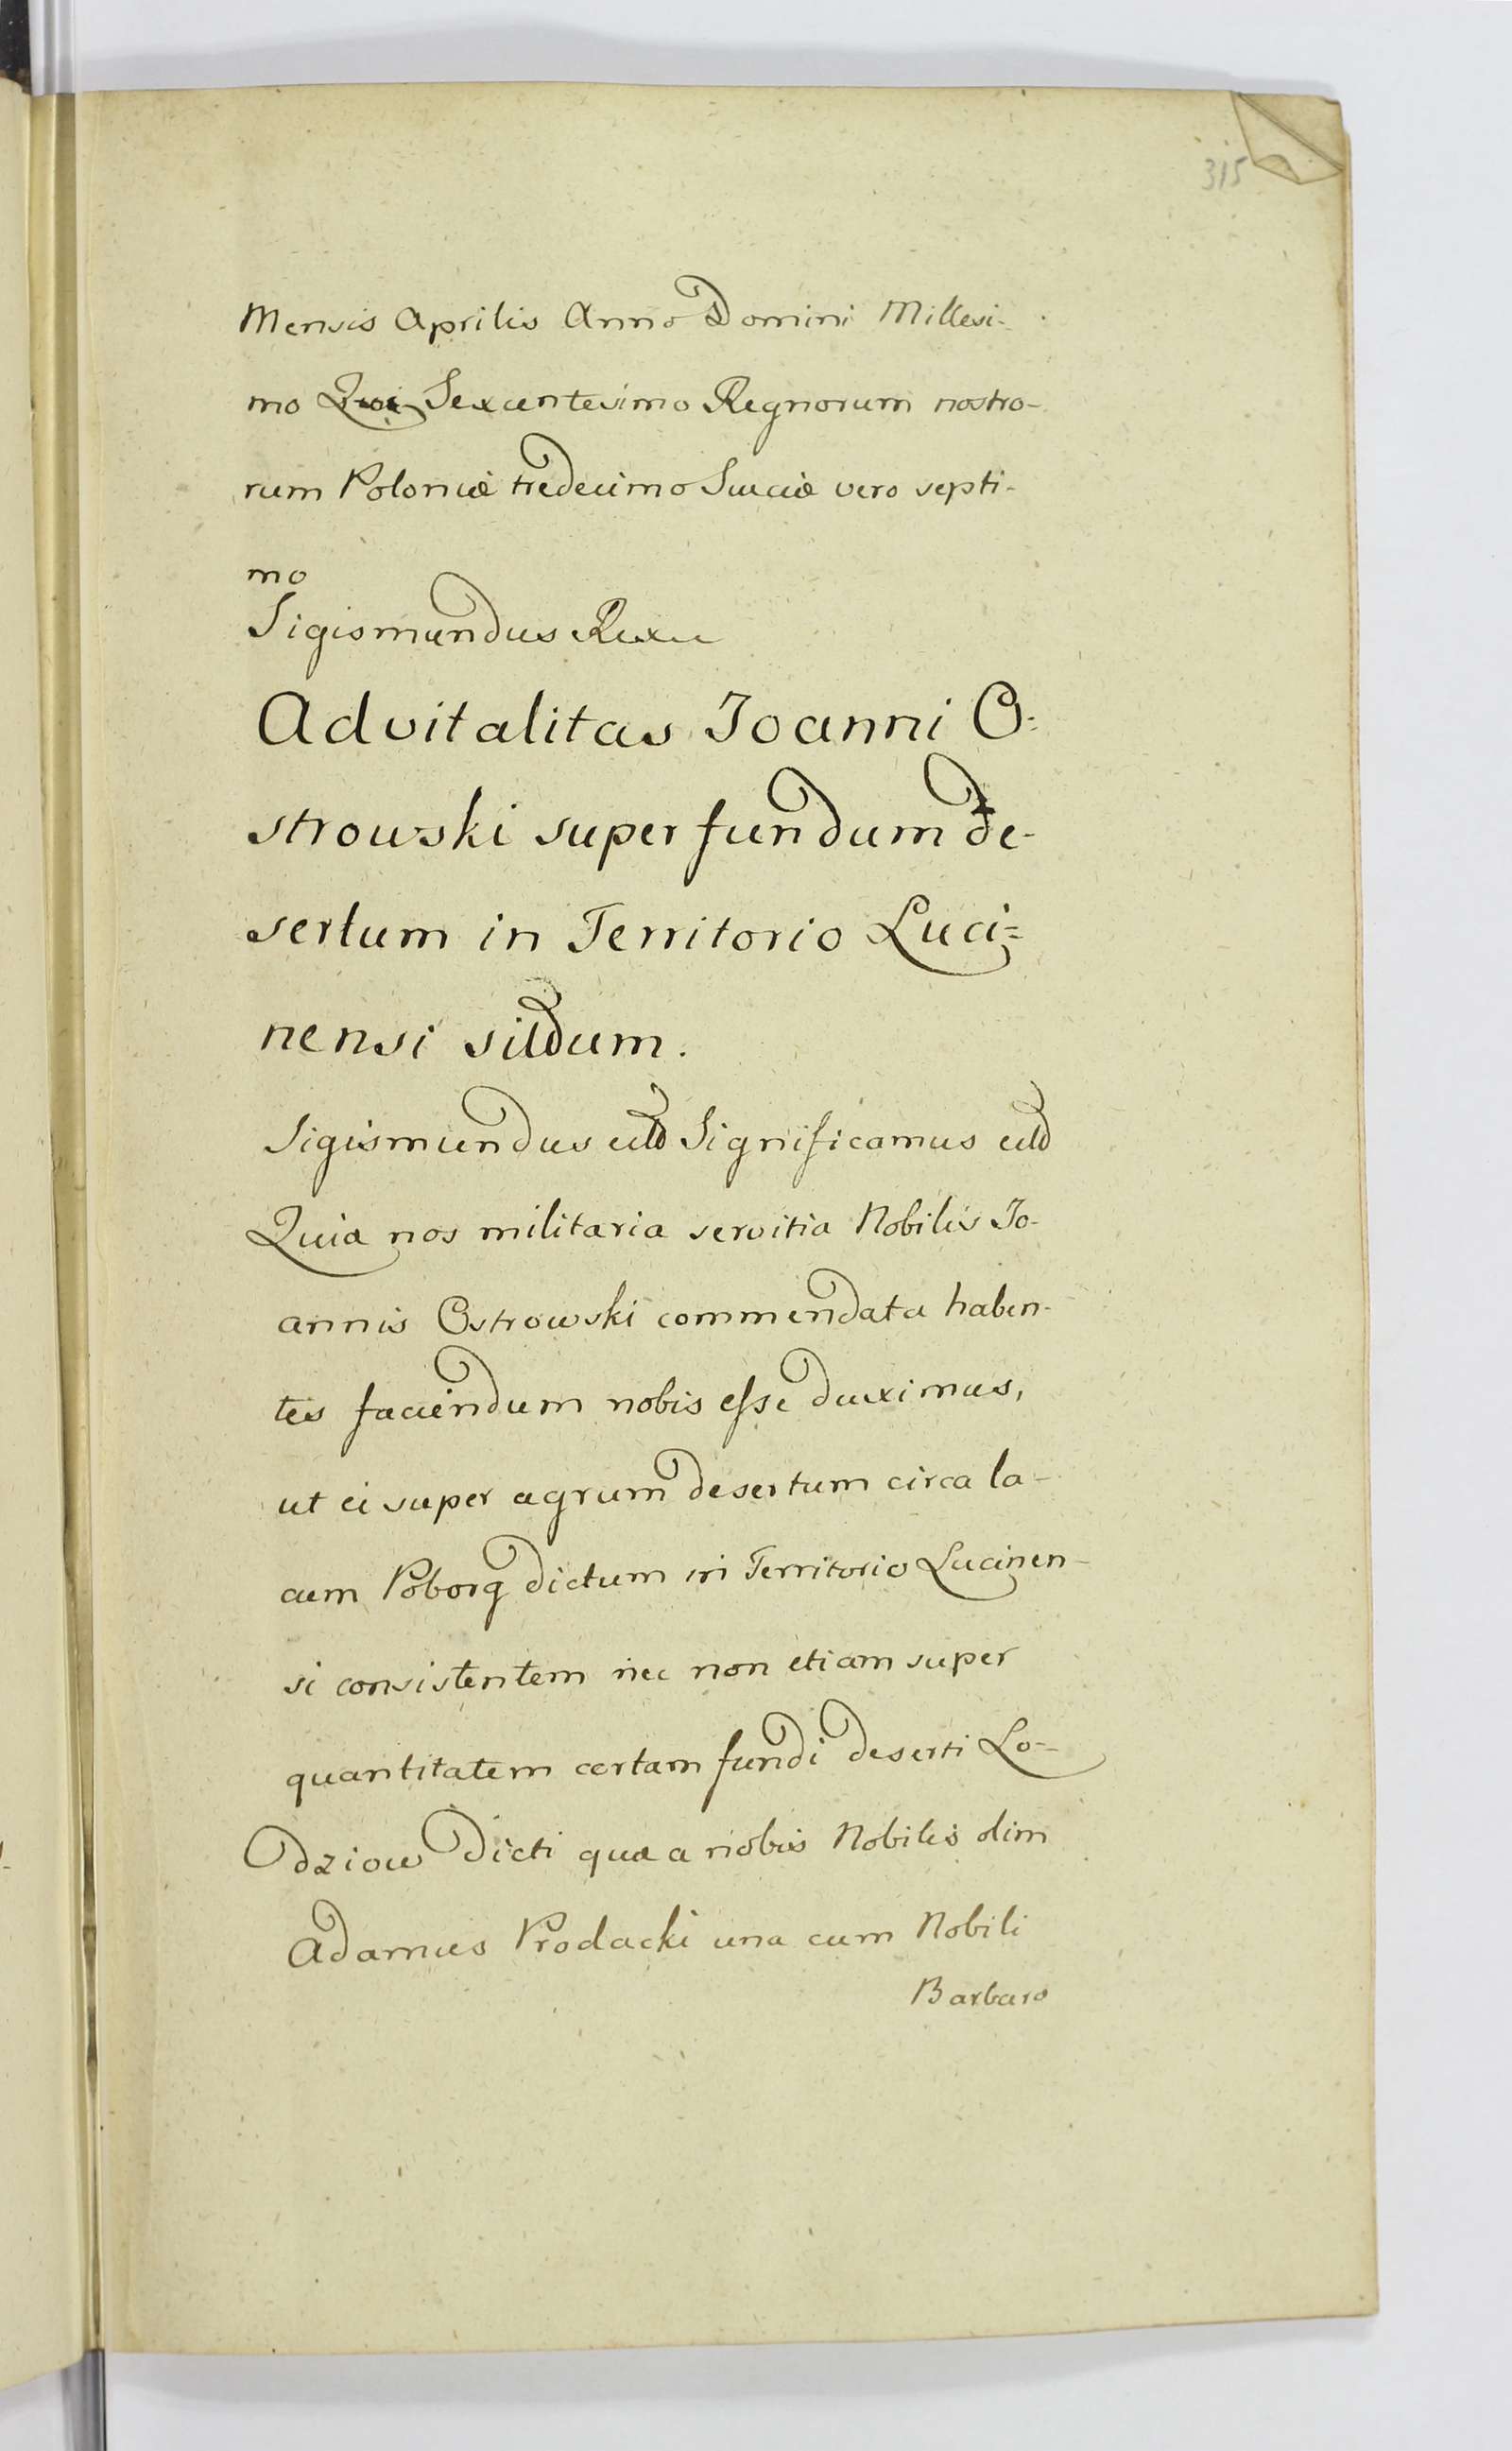 315
Mensis Aprilis Anno Domini Millesi-
mo Sexcentesimo Regnorum nostro-
rum Poloniæ tredecimo Sueciæ vero septi-
mo
Sigismundus Rex
Advitalitas Joanni O-
strowski super fundum de-
sertum in Territorio Luci=
nensi situm.
Sigismundus Significamus
Quia nos militaria servitia Nobilis Jo-
annis Ostrowski commendata haben-
tes faciendum nobis esse duximus,
ut ei super agrum desertum circa la-
cum Poborg dictum in Territorio Lucinen-
si consistentem nec non etiam super
quantitatem certam fundi deserti Lo-
dziow dicti quæ a nobis Nobilis olim
Adamus Prodacki una cum Nobili
Barbaro